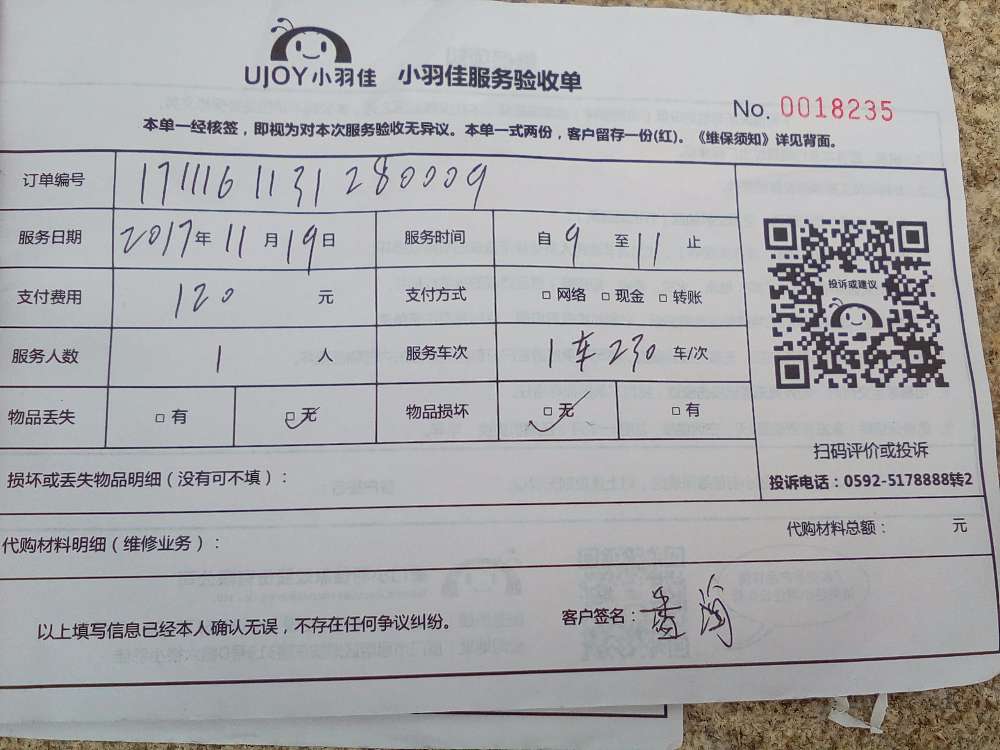 UJOY小羽佳 小羽佳服务验收单
No. 0018235
本单一经核签，即视为对本次服务验收无异议。本单一式两份，客户留存一份(红)。《维保须知》详见背面。
订单编号 1711161131280009
服务日期 2017年11月19日 服务时间 自9至11止
支付费用 120 元 支付方式 □网络 □现金 □转账
服务人数 1 人 服务车次 1车230 车/次
物品丢失 □有 □无 物品损坏 □无 □有
投诉或建议
扫码评价或投诉
投诉电话：0592-5178888转2
损坏或丢失物品明细（没有可不填）：
代购材料明细（维修业务）： 代购材料总额： 元
以上填写信息已经本人确认无误，不存在任何争议纠纷。 客户签名：